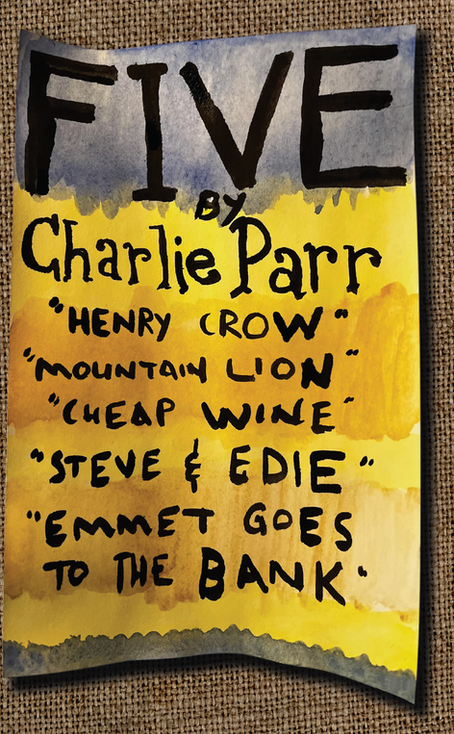 FIVE
BY
Charlie Parr
"HENRY CROW"
"MOUNTAIN LION"
"CHEAP WINE"
"STEVE & EDIE"
"EMMET GOES
TO THE BANK"